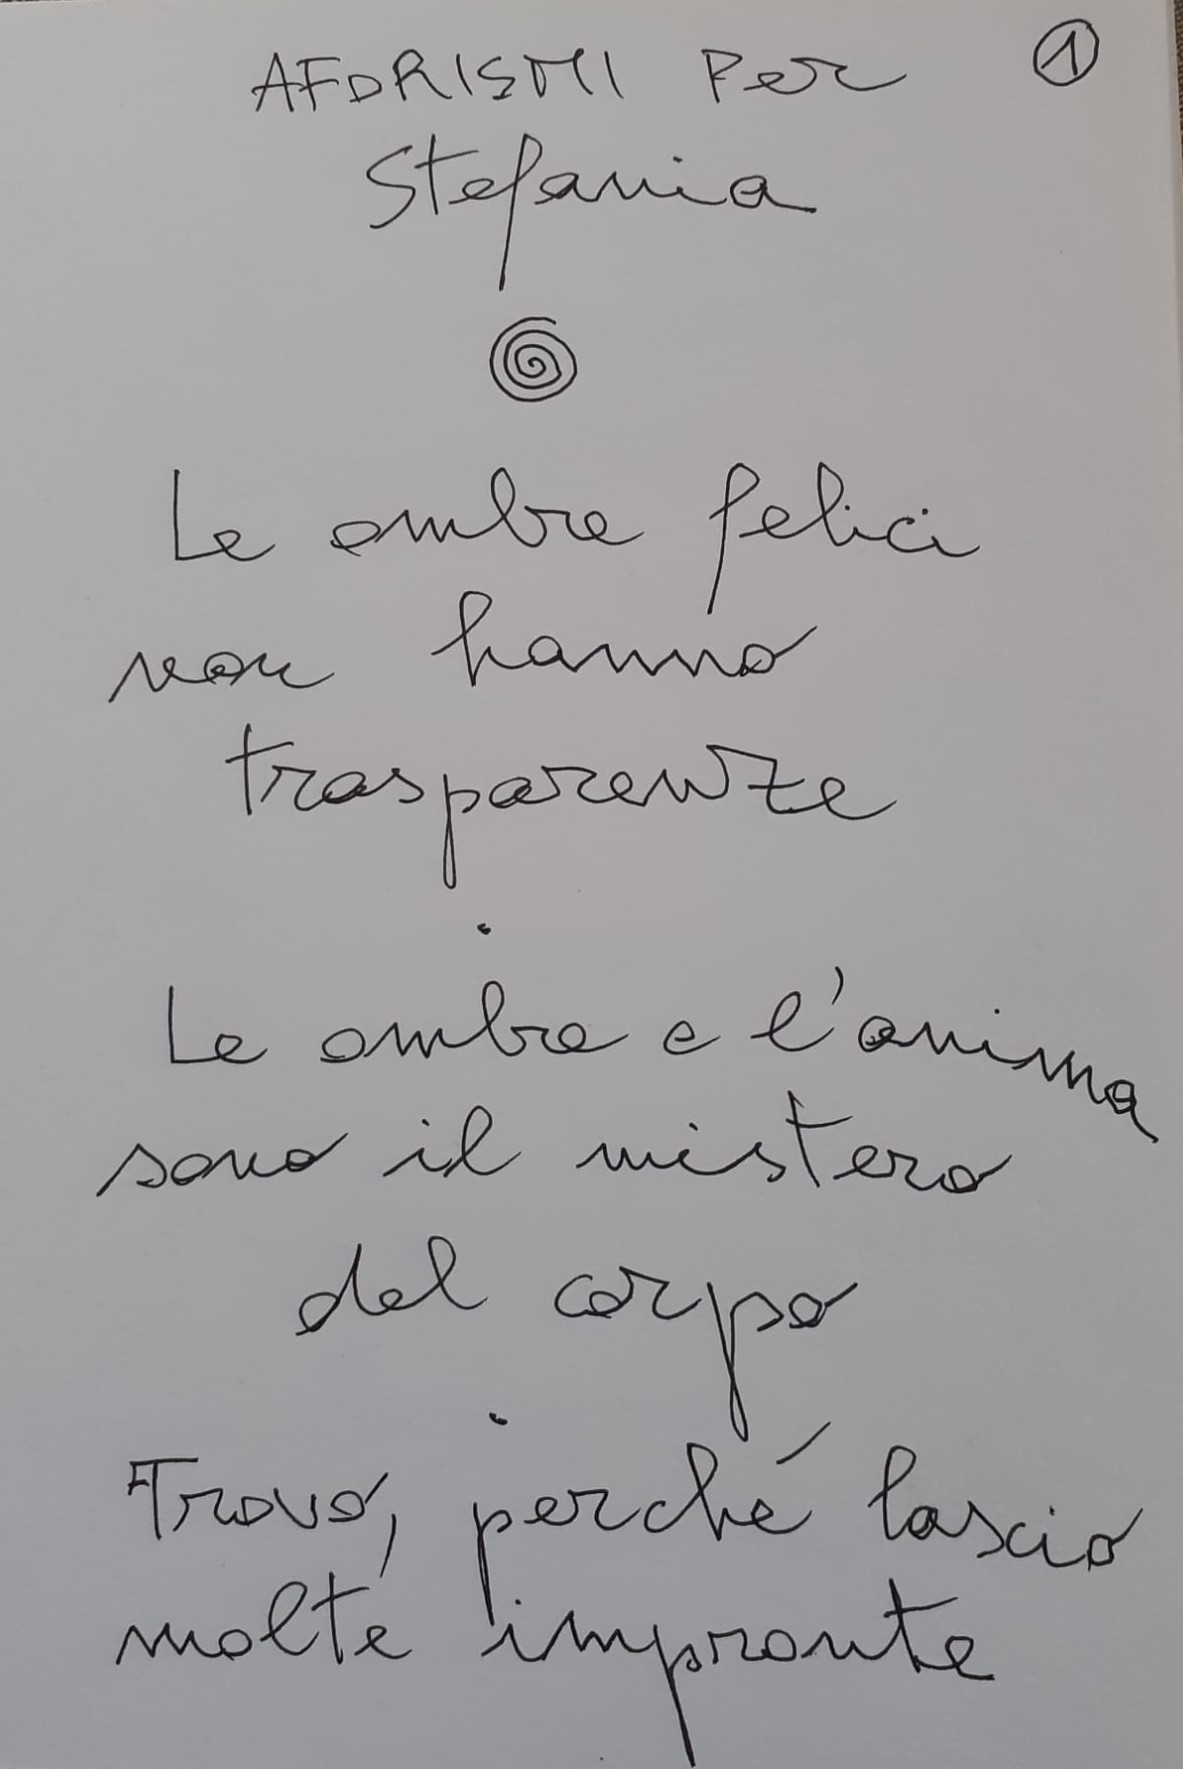 AFORISMI Per
①
Stefania
Le ombre felici
non hanno
trasparenze
.
Le ombre e l'anima
sono il mistero
del corpo
.
Trovo, perché lascio
molte impronte